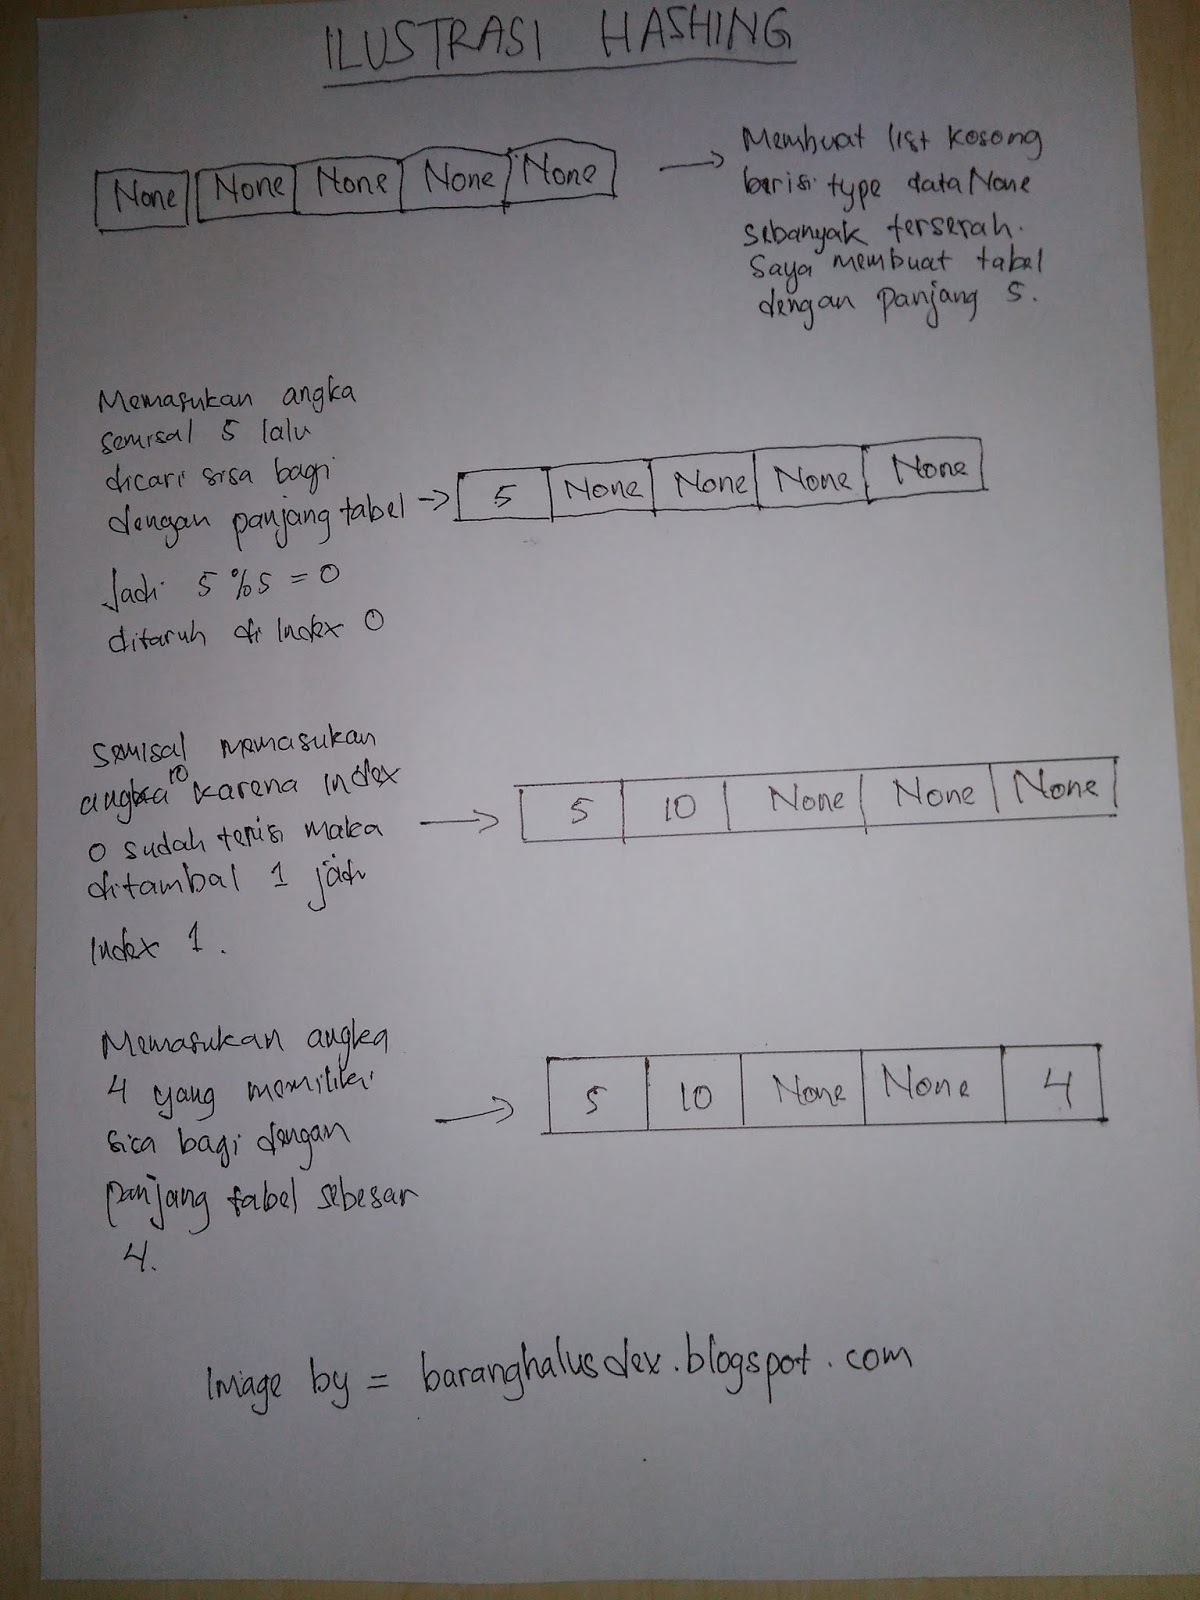 ILUSTRASI HASHING
None None None None None
Membuat list kosong
berisi type data None
sebanyak terserah.
Saya membuat tabel
dengan panjang 5.
Memasukan angka
semisal 5 lalu
dicari sisa bagi
dengan panjang tabel
Jadi 5 % 5 = 0
ditaruh di Index 0
5 None None None None
Semisal memasukan
angka 10 karena index
0 sudah terisi maka
ditambal 1 jadi
Index 1.
5 10 None None None
Memasukan angka
4 yang memiliki
sica bagi dengan
panjang tabel sebesar
4.
5 10 None None 4
Image by = baranghalusdex.blogspot.com